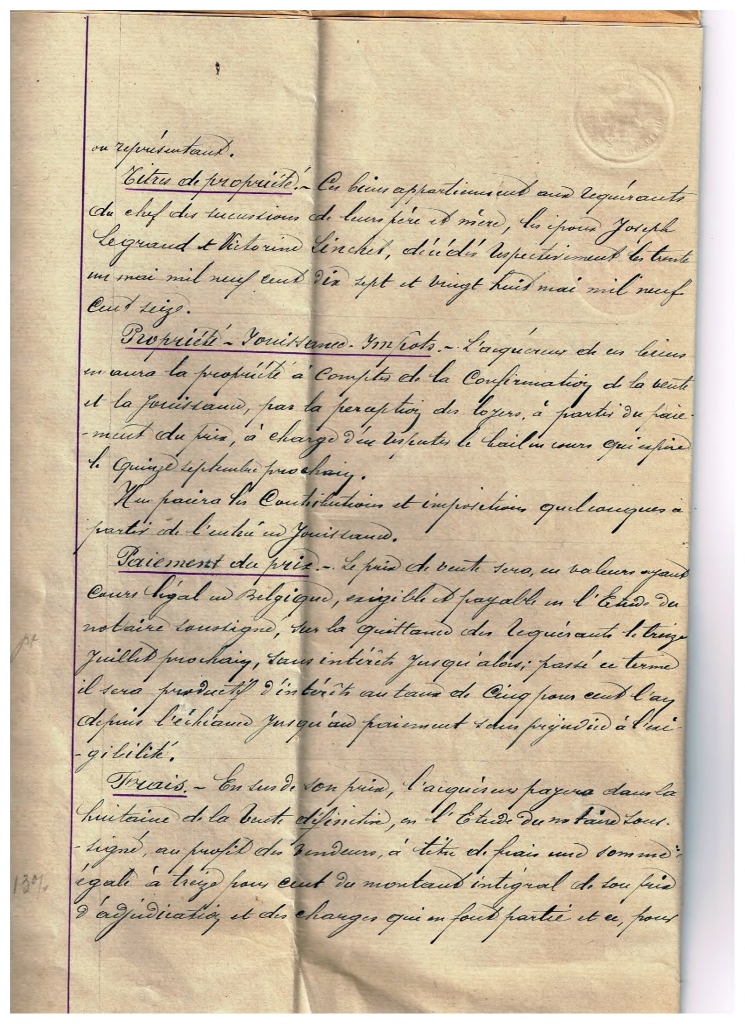 ou représentant.
Titres de propriété. - Ces biens appartiennent aux requérants
du chef des sucussions de leurs père et mère, les époux Joseph
Legrand et Victorine Linchet, décédés respectivement les trente
un mai mil neuf cent dix sept et vingt huit mai mil neuf
cent seize.
Propriété - Jouissance - Impôts. - L'acquéreur de ces biens
en aura la propriété à compter de la confirmation de la vente
et la jouissance, par la perception des loyers, à partir du paie-
-ment du prix, à charge d'en respecter le bail en cours qui expire
le quinze septembre prochain.
Il en paiera les contributions et impositions quelconques à
partir de l'entrée en jouissance.
Paiement du prix. - Le prix de vente sera, en valeurs ayant
cours légal en Belgique, exigible et payable en l'Etude du
notaire soussigné, sur la quittance des requérants le treize
Juillet prochain, sans intérêts jusqu'alors; passé ce terme
il sera productif d'intérêts au taux de cinq pour cent l'an
depuis l'échéance jusqu'au paiement sans préjudice à l'exi-
-gibilité.
Frais. - En sus de son prix, l'acquéreur payera dans la
huitaine de la vente définitive, en l'Etude du notaire sous-
-signé, au profit des vendeurs, à titre de frais une somme
13%
égale à treize pour cent du montant intégral de son prix
d'adjudication et des charges qui en font partie et ce, pour